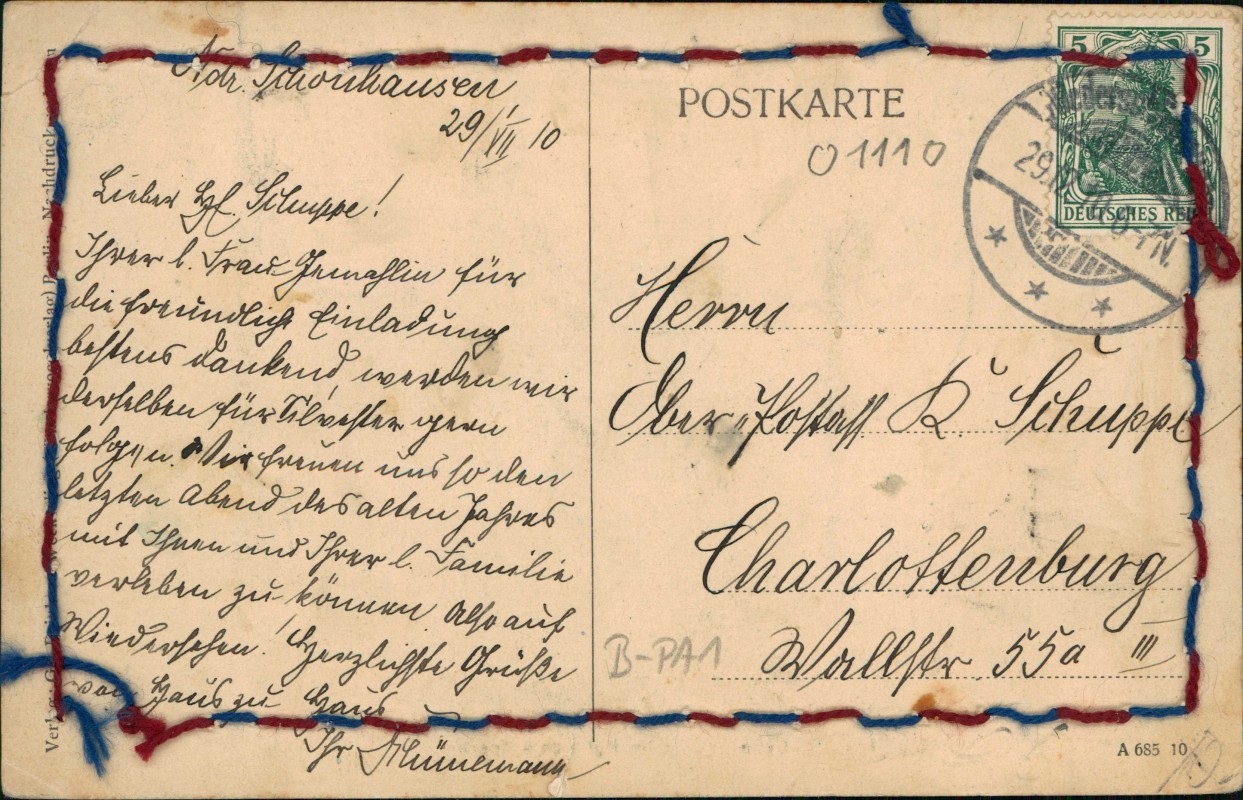 Ndr. Schönhausen
29/VII 10
Lieber H. Schuppe!
Ihrer l. Frau Gemahlin für
die freundliche Einladung
bestens dankend, werden wir
derselben für Silvester gern
folgen. Wir freuen uns so den
letzten Abend des alten Jahres
mit Ihnen und Ihrer l. Familie
verleben zu können. Also auf
Wiedersehen! Herzlichste Grüße
von Haus zu Haus
Ihr
POSTKARTE
01110
5 5
DEUTSCHES REICH
Herrn
Ober-Postass K. Schuppe
Charlottenburg
Wallstr. 55a III
B-PA1
A 685 10